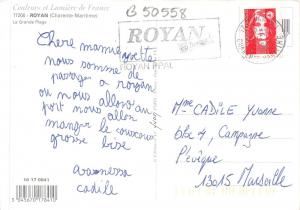 Couleurs et Lumière de France
17200 - ROYAN (Charente-Maritime)
La Grande Plage
B 50558
ROYAN
ROYAN PPAL
Chere mamie yvette
nous somme de
passage a royan
ou nous allons au
port nous allon
manger le couscous
grosse bise
vanessa
cadile
Mme CADILE Yvonne
Bec 4, Campagne
l'évêque
13015 Marseille
10 17 0041
3 045670 178410